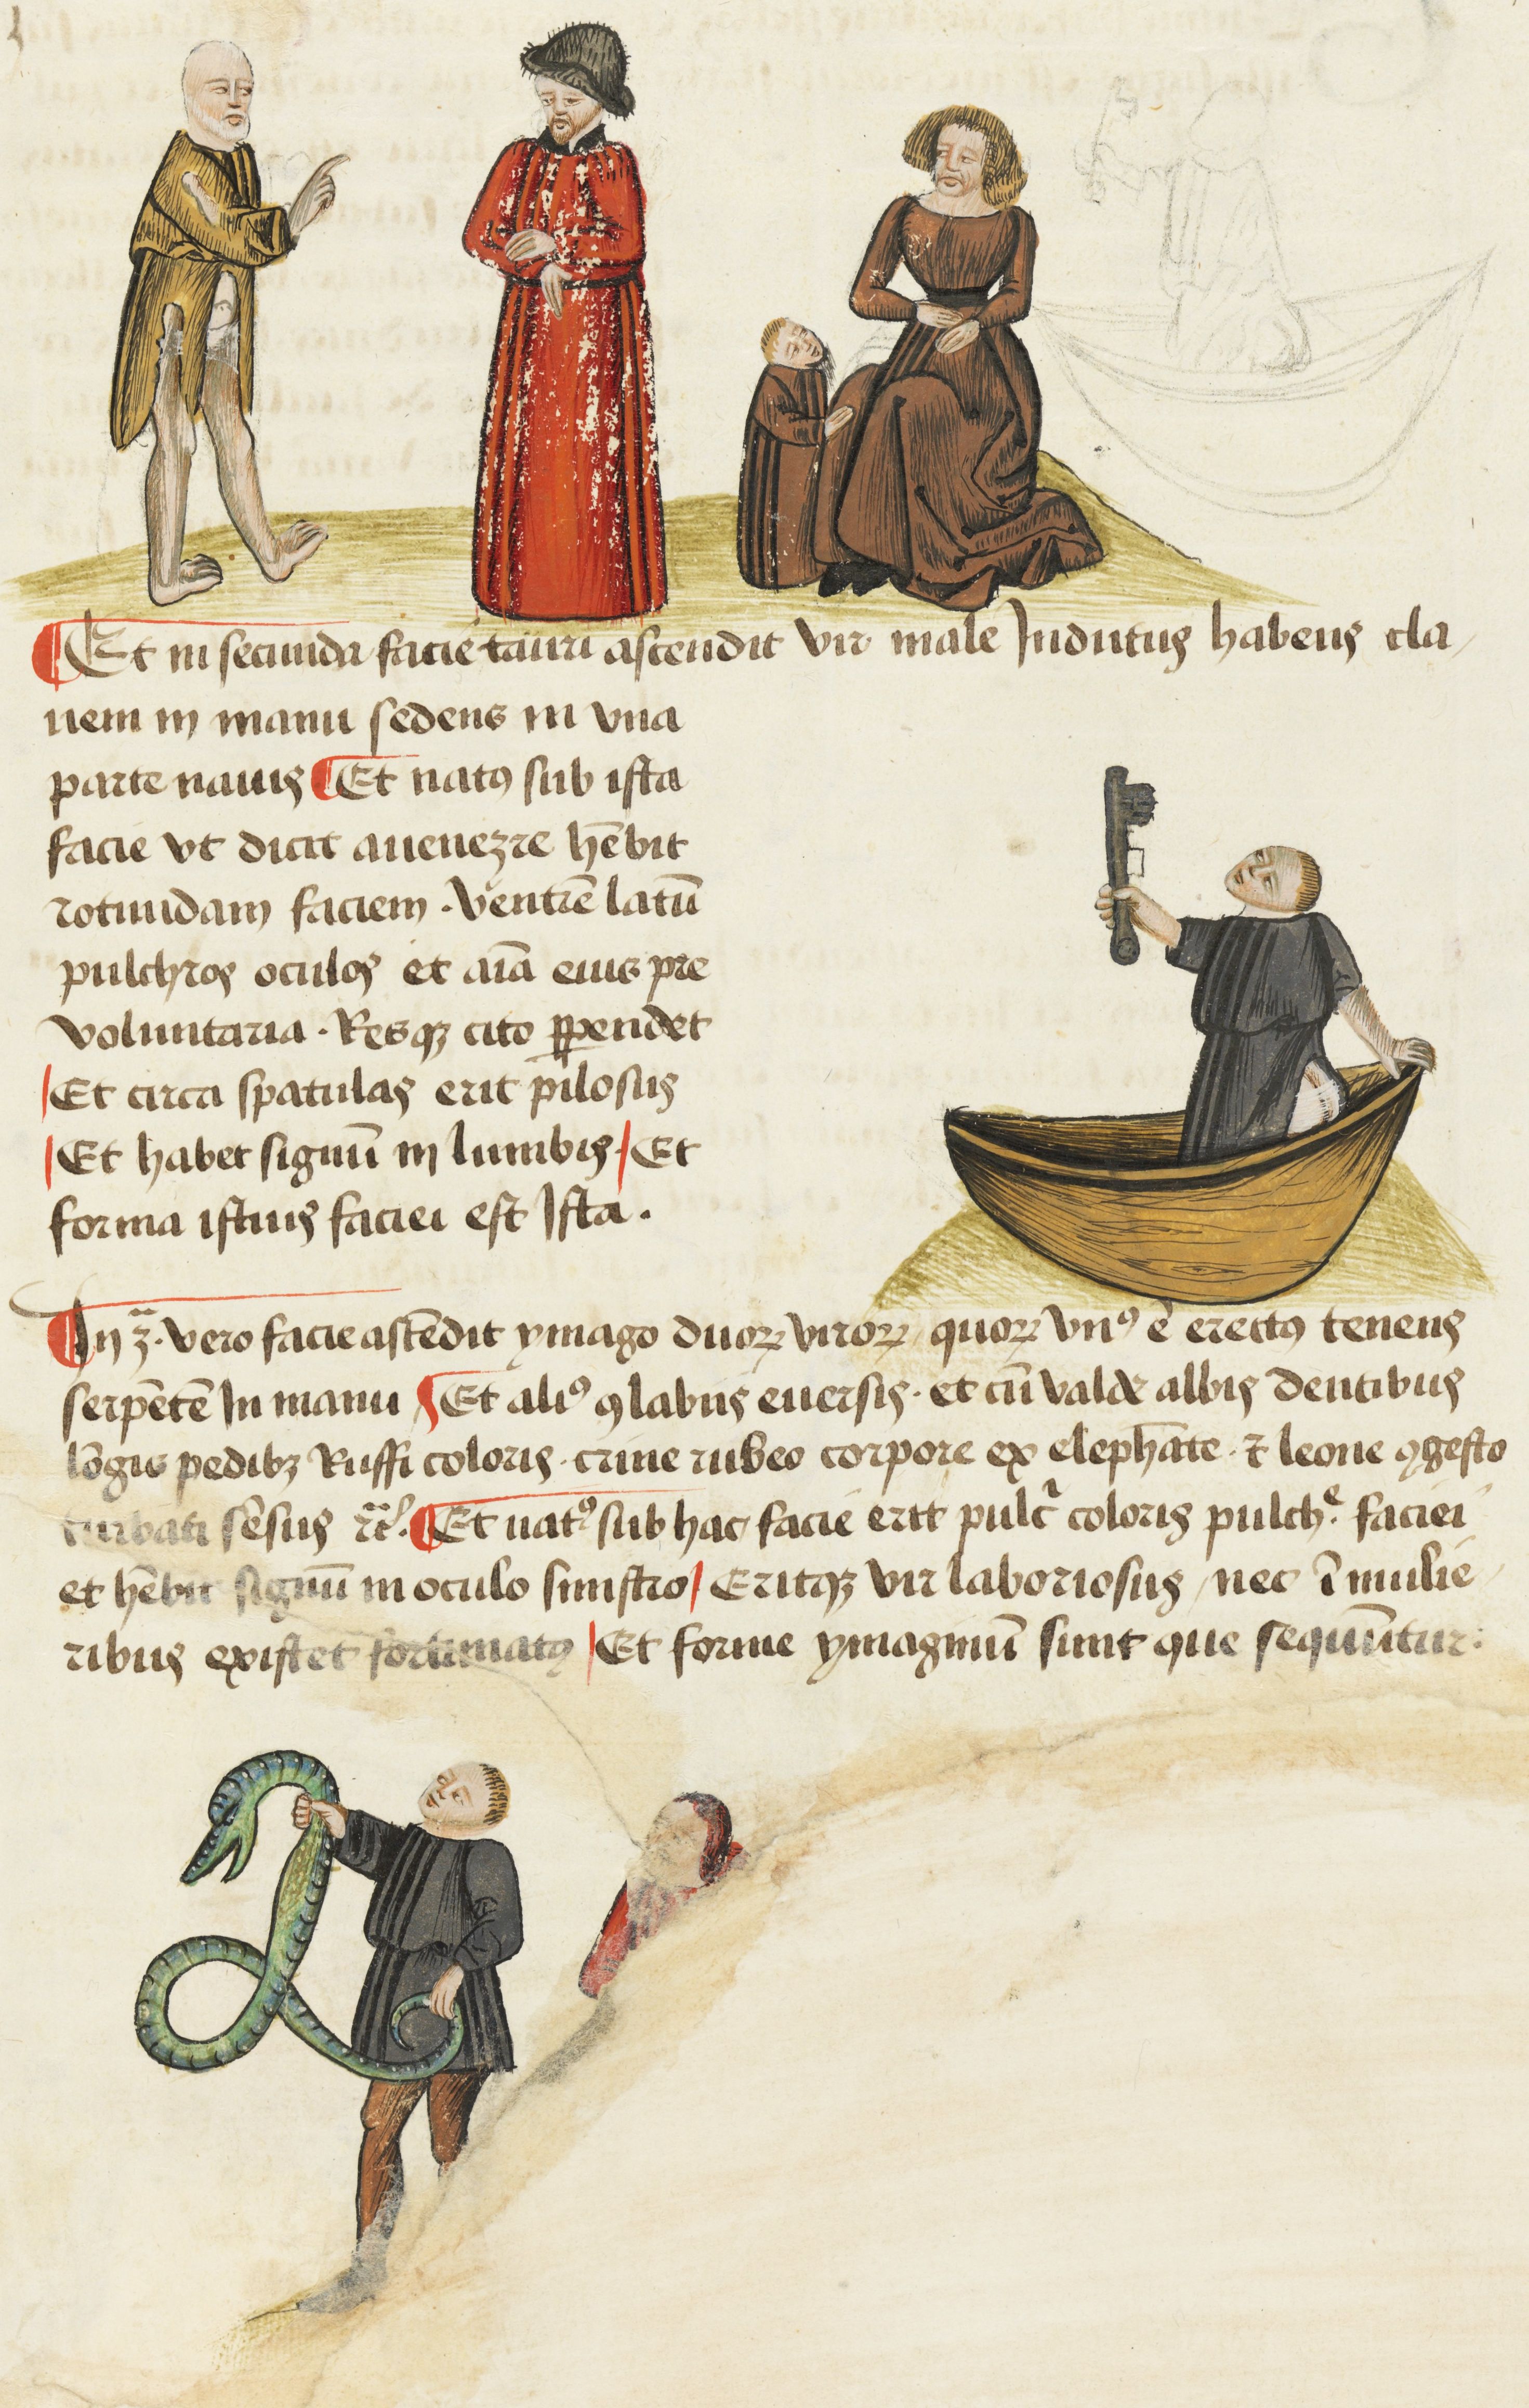 Et in secunda facie tauri ascendit vir male Indutus habens cla
uem in manu sedens in vna
parte nauis Et natꝰ sub ista
facie vt dicit auenezre hēbit
rotundam faciem . Ventrē latū
pulchros oculos et aīa eius pre
voluntaria . Resqꝫ cito ꝑpendet
Et circa spatulas erit pilosus
Et habet signū in lumbis . Et
forma istius faciei est Ista .
In 3ᵃ . vero facie ascēdit ymago duoꝝ viroꝝ quoꝝ vnꝰ ē erectꝰ tenens
serpētē In manu Et aliꝰ ꝯ labiis euersis . et cū valde albis dentibus
lōgis pedibꝫ Ruffi coloris . crine rubeo corpore ex elephāte . ⁊ leone ꝯgesto
turbati sēsus Et natꝰ sub hac facie erit pulcͬ coloris pulchͤ . faciei
et hēbit signū in oculo sinistro Eritqꝫ vir laboriosus nec ī mulie
ribus existet fortunatꝰ Et forme ymaginū sunt que sequūtur :